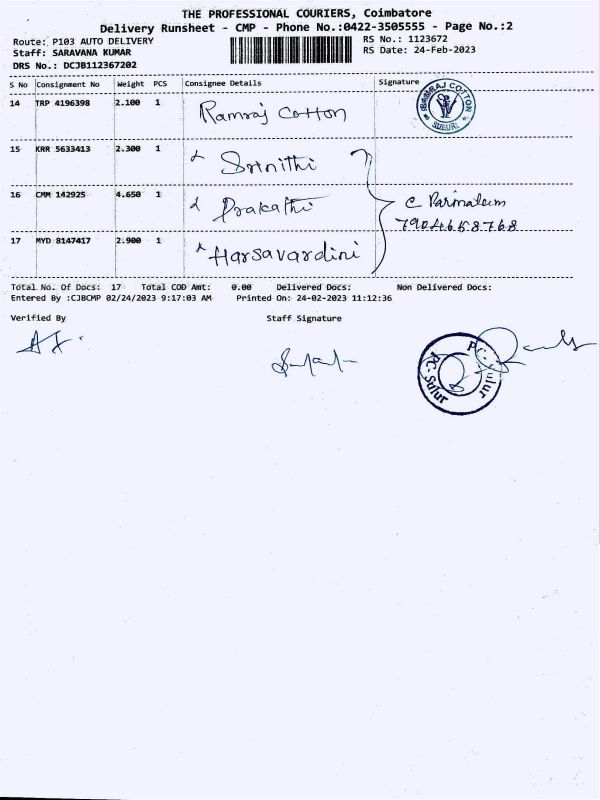 THE PROFESSIONAL COURIERS, Coimbatore
Delivery Runsheet - CMP - Phone No.:0422-3505555 - Page No.:2
Route: P103 AUTO DELIVERY RS No.: 1123672
Staff: SARAVANA KUMAR RS Date: 24-Feb-2023
DRS No.: DCJB112367202
S No Consignment No Weight PCS Consignee Details Signature
14 TRP 4196398 2.100 1 Ramraj Cotton
RAMRAJ COTTON
SULUR
15 KRR 5633413 2.300 1 Srinithi
16 CMM 142925 4.650 1 Prakathi
17 MYD 8147417 2.900 1 Harsavardini
7904658768
Total No. Of Docs: 17 Total COD Amt: 0.00 Delivered Docs: Non Delivered Docs:
Entered By :CJBCMP 02/24/2023 9:17:03 AM Printed On: 24-02-2023 11:12:36
Verified By Staff Signature
PC. Sulur PC. Sulur